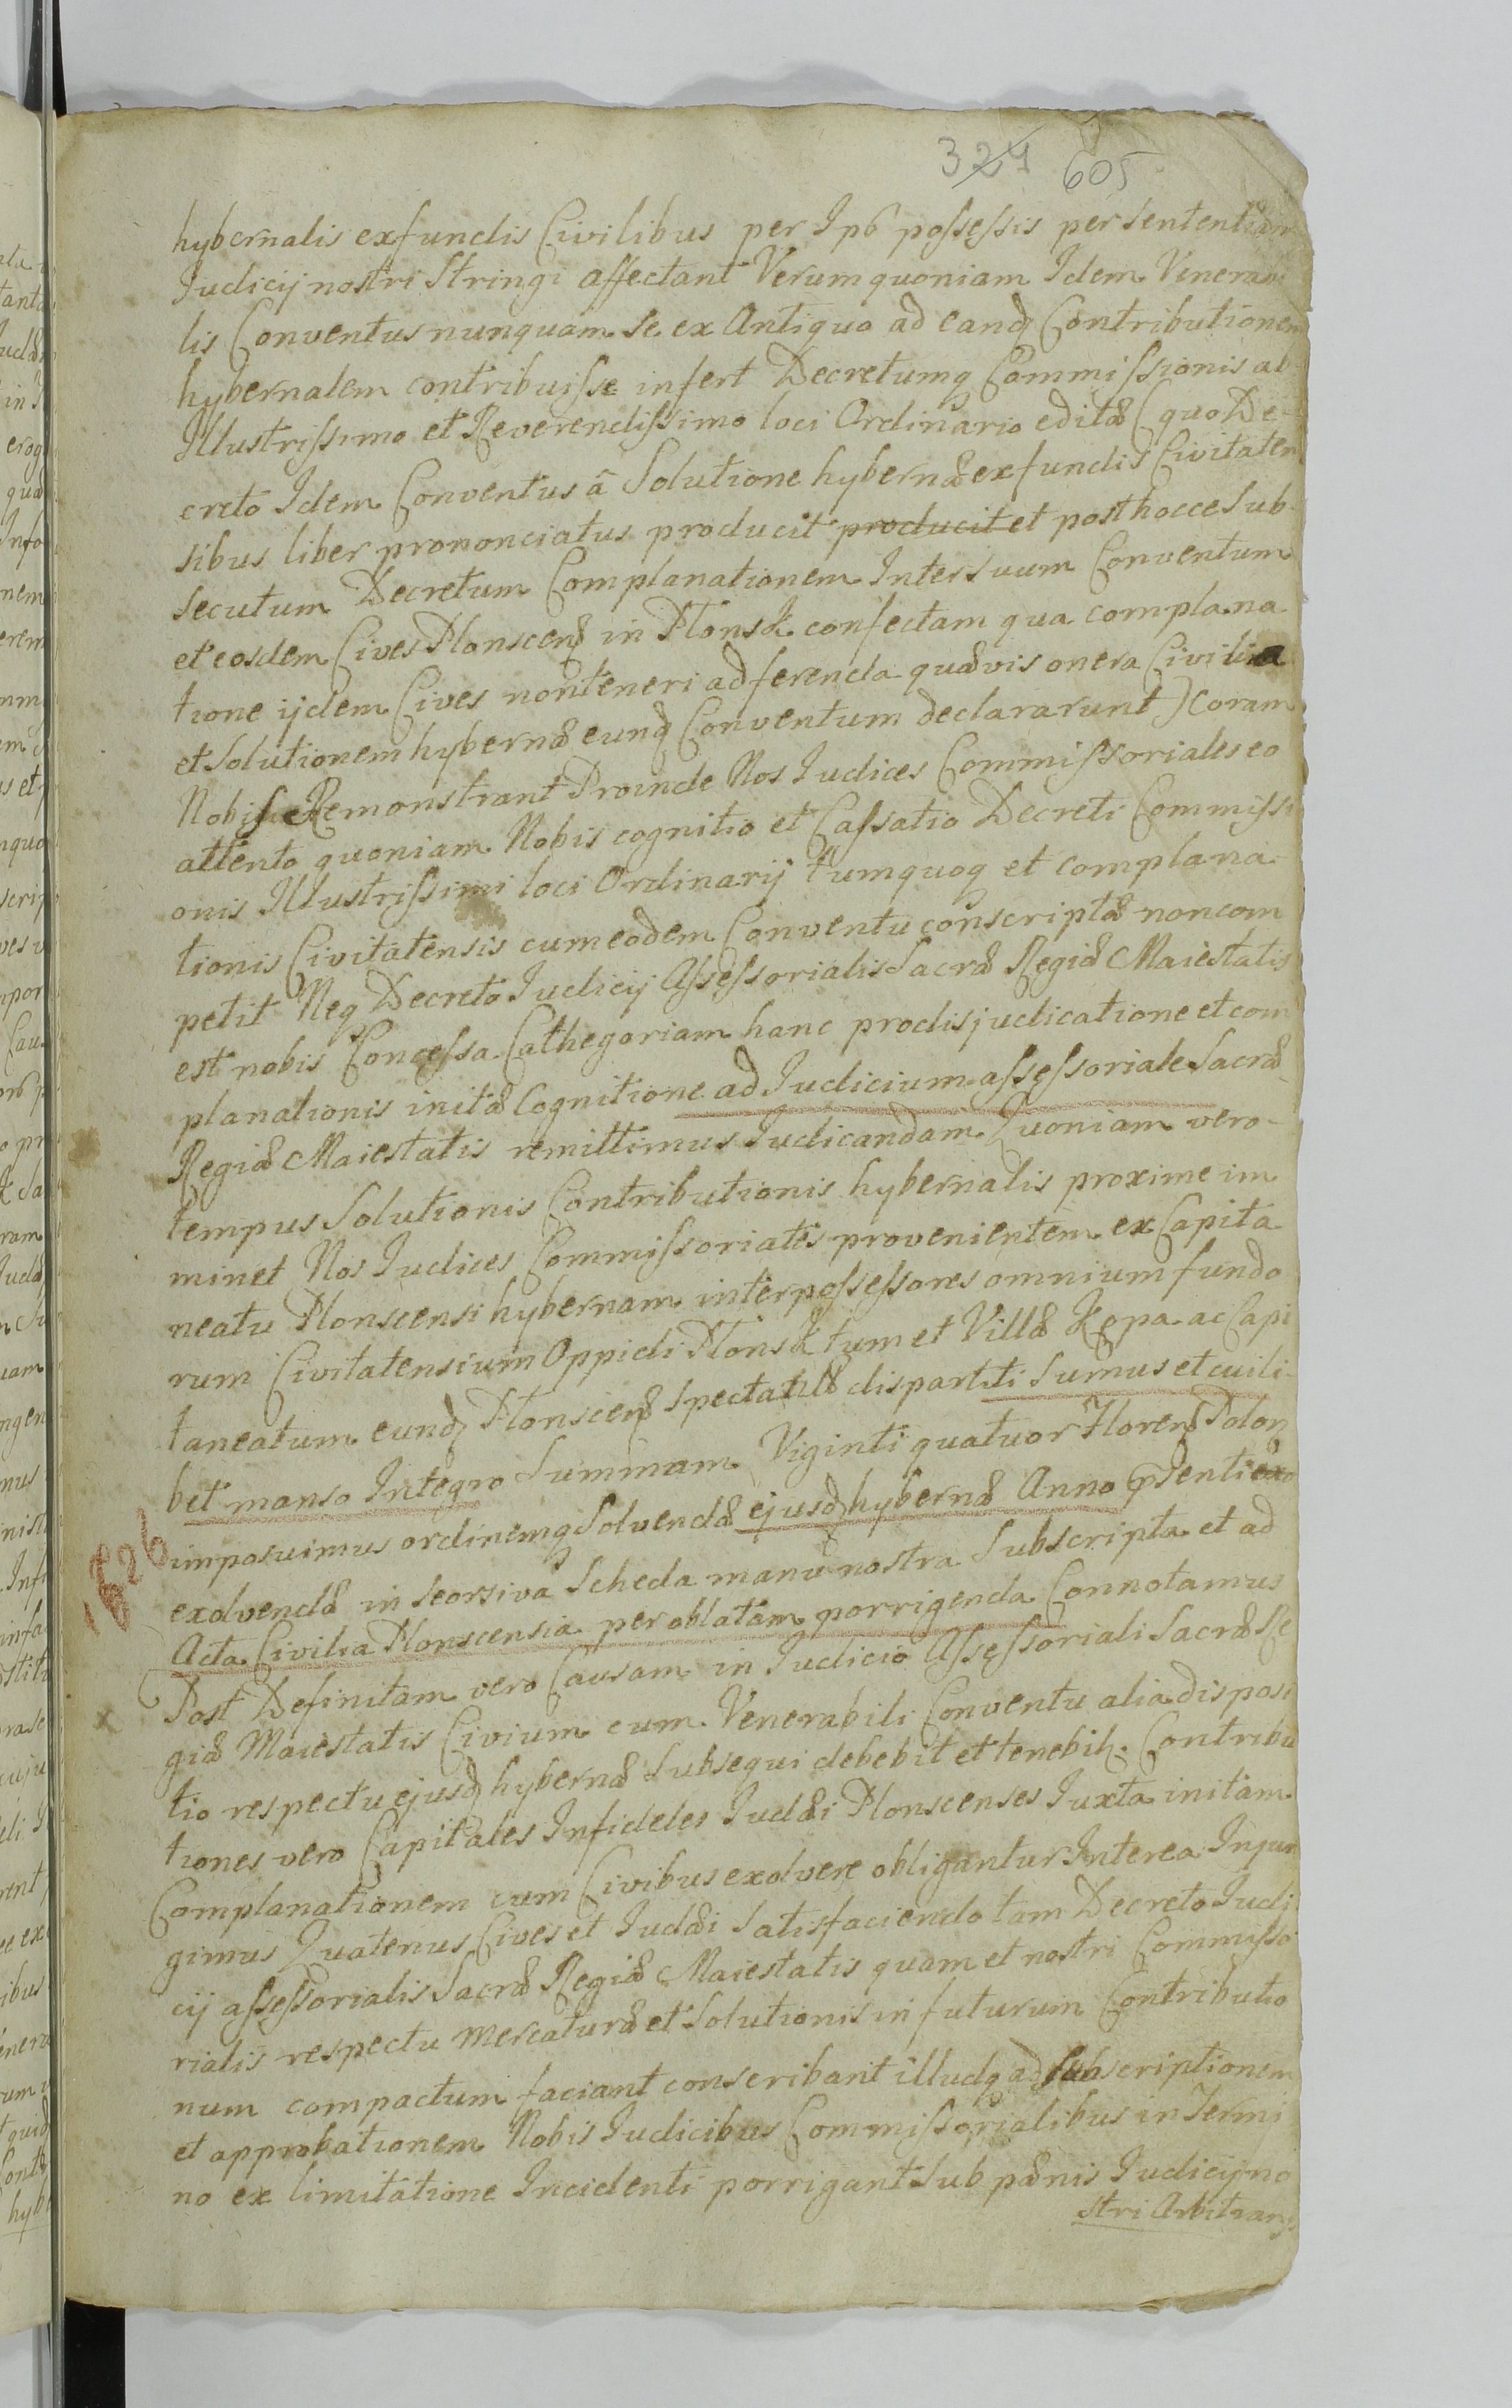 324 605
hybernalis ex fundis Civilibus per Ips possessis per Sententiam
Iudicij nostri Stringi affectant Verum quoniam Idem Venerabi
lis Conventus nunquam se ex Antiquo ad eandq Contributionem
hybernalem contribuisse infert Decretumq Commissionis ab
Illustrissimo et Reverendissimo loci Ordinario editæ (quo De-
creto Idem Conventus â Solutione hybernæ ex fundis Civitaten
sibus liber prononciatus producit producit et post hocce Sub-
secutum Decretum Complanationem Inter suum Conventum
et eosdem Cives Plonscens in Plonsk confectam qua complana
tione ijdem Cives non teneri ad ferenda quævis onera Civilia
et Solutionem hybernæ eundq Conventum declararunt) Coram
Nobis Remonstrant Proinde Nos Iudices Commissoriales eo
attento quoniam Nobis cognitio et Cassatio Decreti Commissi
onis Illustrissimi loci Ordinarij tumquoq et complana-
tionis Civitatensis cum eodem Conventu conscriptæ non com
petit Neq Decreto Iudicij Assessorialis Sacræ Regiæ Maiestatis
est nobis Concessa Cathegoriam hanc pro disjudicatione et com
planationis initæ Cognitione ad Iudicium assessoriale Sacræ
Regiæ Maiestatis remittimus Iudicandam Quoniam vero-
tempus Solutionis Contributionis hybernalis proxime im
minet Nos Iudices Commissoriales provenientem ex Capita
neatu Plonscensi hybernam inter possessores omnium fundo
rum Civitatensium Oppidi Plonsk tum et Villæ Kępa ac Capi
taneatum eundq Plonscens Spectatæ dispartiti Sumus et cuili-
bet manso Integro Summam Viginti quatuor Florens Polon
imposuimus ordinemq Solvendæ ejusdq hybernæ Anno p̄senti
exolvendæ in Seorsiva Scheda manu nostra Subscripta et ad
1626
Acta Civilia Plonscensia per oblatam porrigenda Connotamus
Post Definitam vero Causam in Iudicio Assessoriali Sacræ Re
x
giæ Maiestatis Civium cum Venerabili Conventu alia disposi
tio respectu ejusdq hybernæ Subsequi debebit et tenebitr. Contribu
tiones vero Capitales Infideles Iudæi Plonscenses Iuxta initam
Complanationem cum Civibus exolvere obligantur Interea Injun
gimus Quatenus Cives et Iudæi Satisfaciendo tam Decreto Iudi
cij assessorialis Sacræ Regiæ Maiestatis quam et nostri Commisso
rialis respectu Mercaturæ et Solutionis in futurum Contributio
num compactum faciant conscribant illudq ad Subscriptionem
et approbationem Nobis Iudicibus Commissorialibus in Termi
no ex limitatione Incidenti porrigant Sub pænis Iudicij no
stri Arbitrarijs